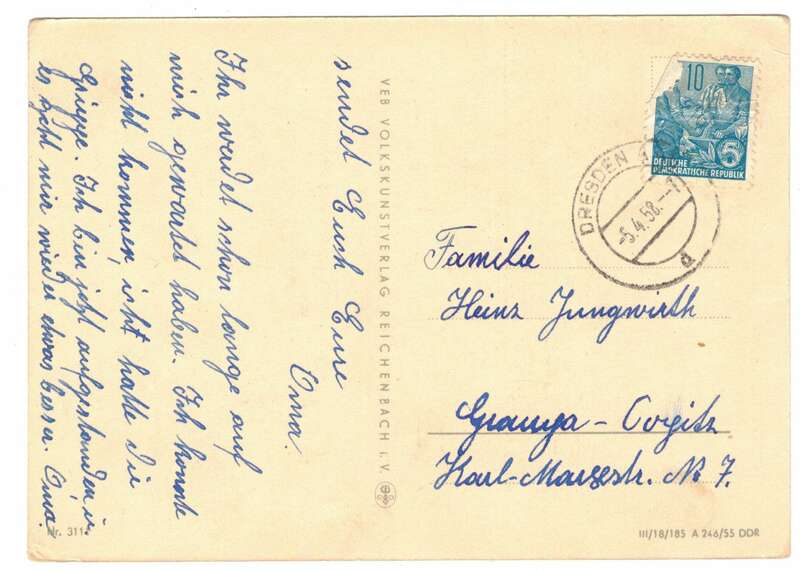 sendet Euch Eure
Oma.
Ihr werdet schon lange auf
mich gewartet haben. Ich konnte
nicht kommen, ich hatte die
Grippe. Ich bin jetzt aufgestanden, u.
es geht mir wieder etwas besser. Oma.
Nr. 311
VEB VOLKSKUNSTVERLAG REICHENBACH i. V.
10
5
DEUTSCHE
DEMOKRATISCHE REPUBLIK
DRESDEN
-5.4.58.--1
d
Familie
Heinz Jungwirth
Graupa - Copitz
Karl-Marxstr. Nr 7.
III/18/185 A 246/55 DDR